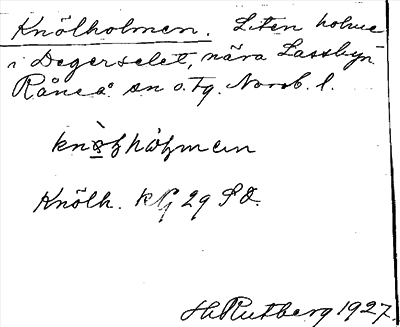 Knölholmen. Liten holme
i Degerselet, nära Lassbyn
Råneå sn o. tg. Norrb. l.
Knölh. kG 29 SO.
H. Rutberg 1927.